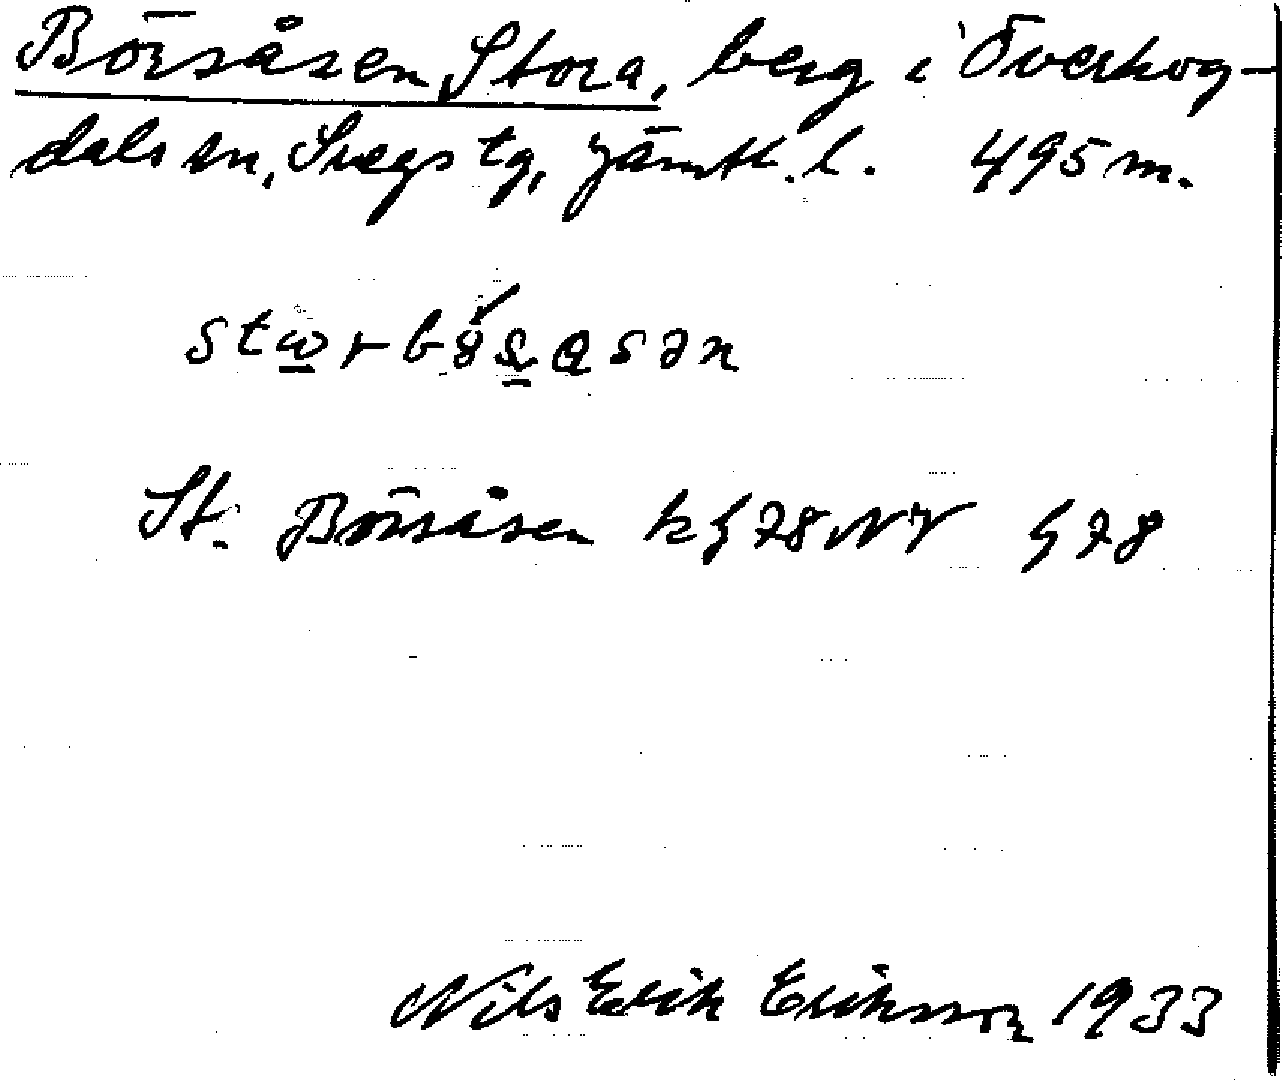 Börsåsen, Stora, berg i Överhog-
dals sn, Svegs tg, Jämtl. l. 495 m.
St. Börsåsen k§78NV §78
Nils Erik Eriksson 1933